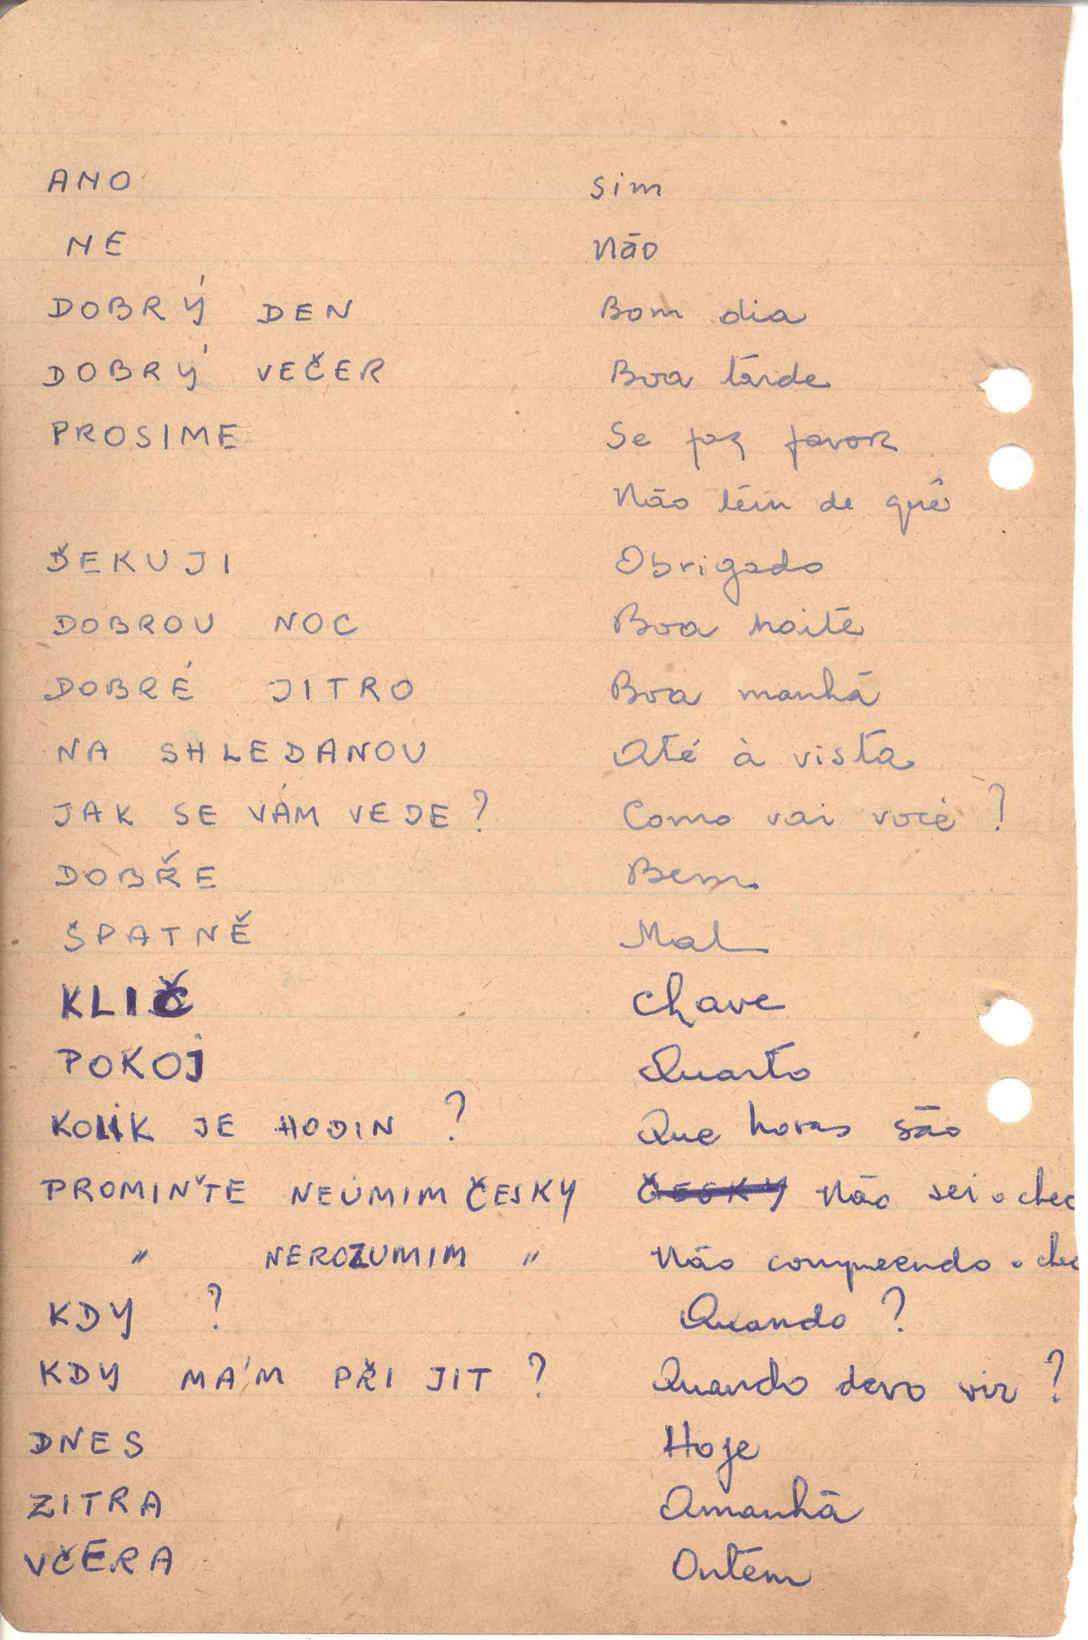 ANO sim
NE Não
DOBRÝ DEN Bom dia
DOBRÝ VEČER Boa tarde
PROSIME Se faz favor
Não têm de quê
ĎEKUJI Obrigado
DOBROU NOC Boa noite
DOBRÉ JITRO Boa manhã
NA SHLEDANOU Até à vista
JAK SE VÁM VEDE? Como vai você?
DOBŘE Bem
ŠPATNĚ Mal
KLIČ Chave
POKOJ Quarto
KOLIK JE HODIN? Que horas são
PROMIŇTE NEUMIM ČESKY ČESKY Não sei o chec
" NEROZUMIM " Não compreendo o chec
KDY? Quando?
KDY MÁM PŘI JIT? Quando devo vir?
DNES Hoje
ZITRA Amanhã
VČERA Ontem